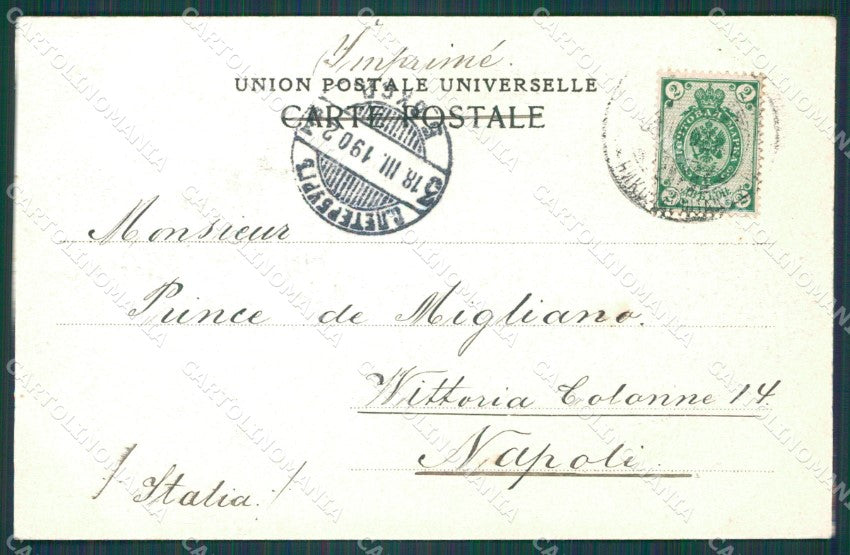 Imprimé.
UNION POSTALE UNIVERSELLE
CARTE POSTALE
С.ПЕТЕРБУРГЪ
18.III.1902
2
2
ПОЧТОВАЯ МАРКА
2
2
Monsieur
Prince de Migliano.
Vittoria Colonne 14
Napoli
/ Italia. /
CARTOLINOMANIA